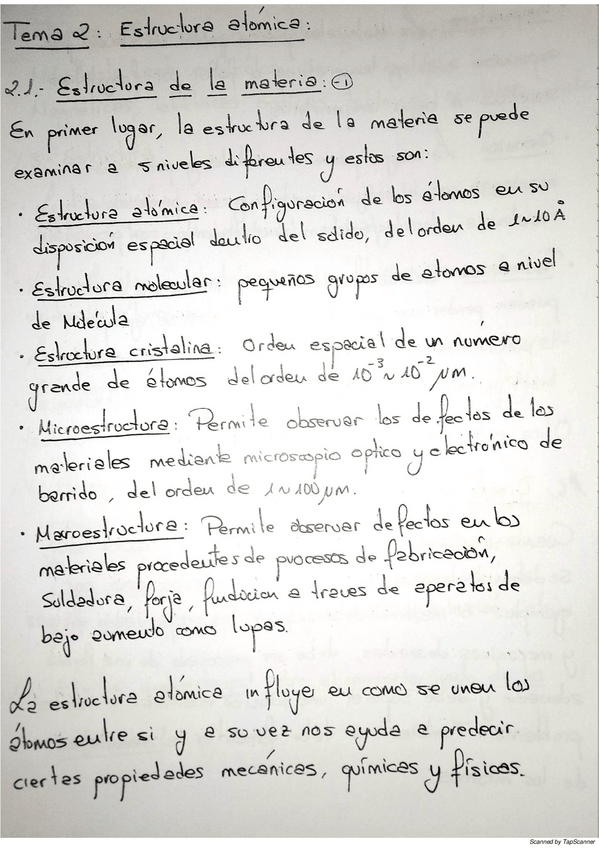 Tema 2: Estructura atómica:
2.1.- Estructura de la materia: (-1)
En primer lugar, la estructura de la materia se puede
examinar a 5 niveles diferentes y estos son:
· Estructura atómica: Configuración de los átomos en su
disposición espacial dentro del sólido, del orden de 1~10 Å
· Estructura molecular: pequeños grupos de atomos a nivel
de Molécula
· Estructura cristalina: Orden espacial de un número
grande de átomos del orden de 10⁻³ ~ 10⁻² μm.
· Microestructura: Permite observar los defectos de los
materiales mediante microscopio optico y electrónico de
barrido, del orden de 1~100 μm.
· Maroestructura: Permite observar defectos en los
materiales procedentes de procesos de fabricación,
Soldadura, forja, fundicion a traves de aparatos de
bajo aumento como lupas.
La estructura atómica influye en como se unen los
átomos entre si y a su vez nos ayuda a predecir
ciertas propiedades mecánicas, químicas y físicas.
Scanned by TapScanner